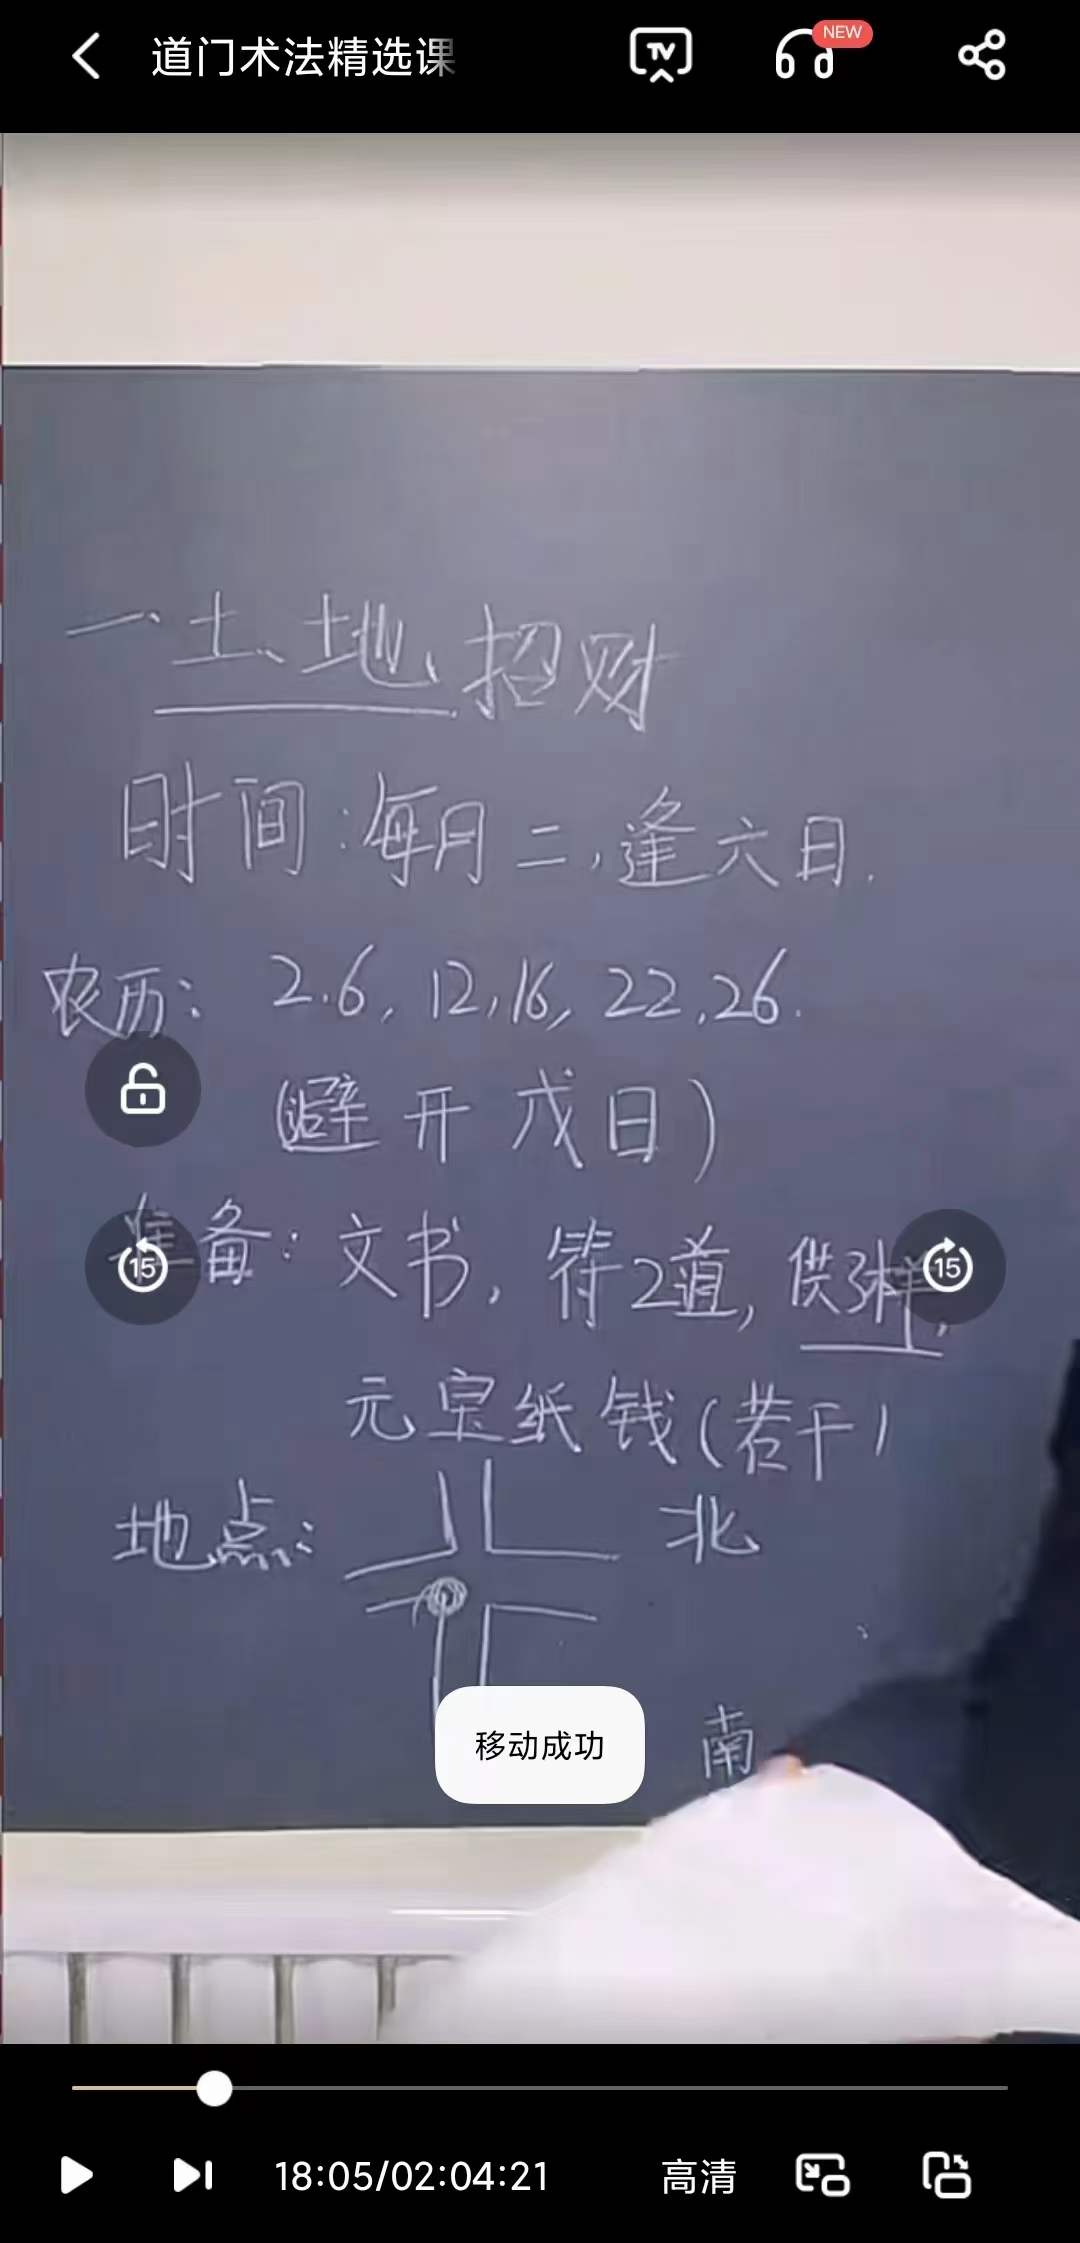 道门术法精选课
TV
NEW
一、土地招财
时间:每月二,逢六日.
农历: 2.6, 12,16, 22,26.
(避开戊日)
准备: 文书, 符2道, 供3样,
元宝纸钱(若干)
地点: 北
南
15
15
移动成功
18:05/02:04:21
高清